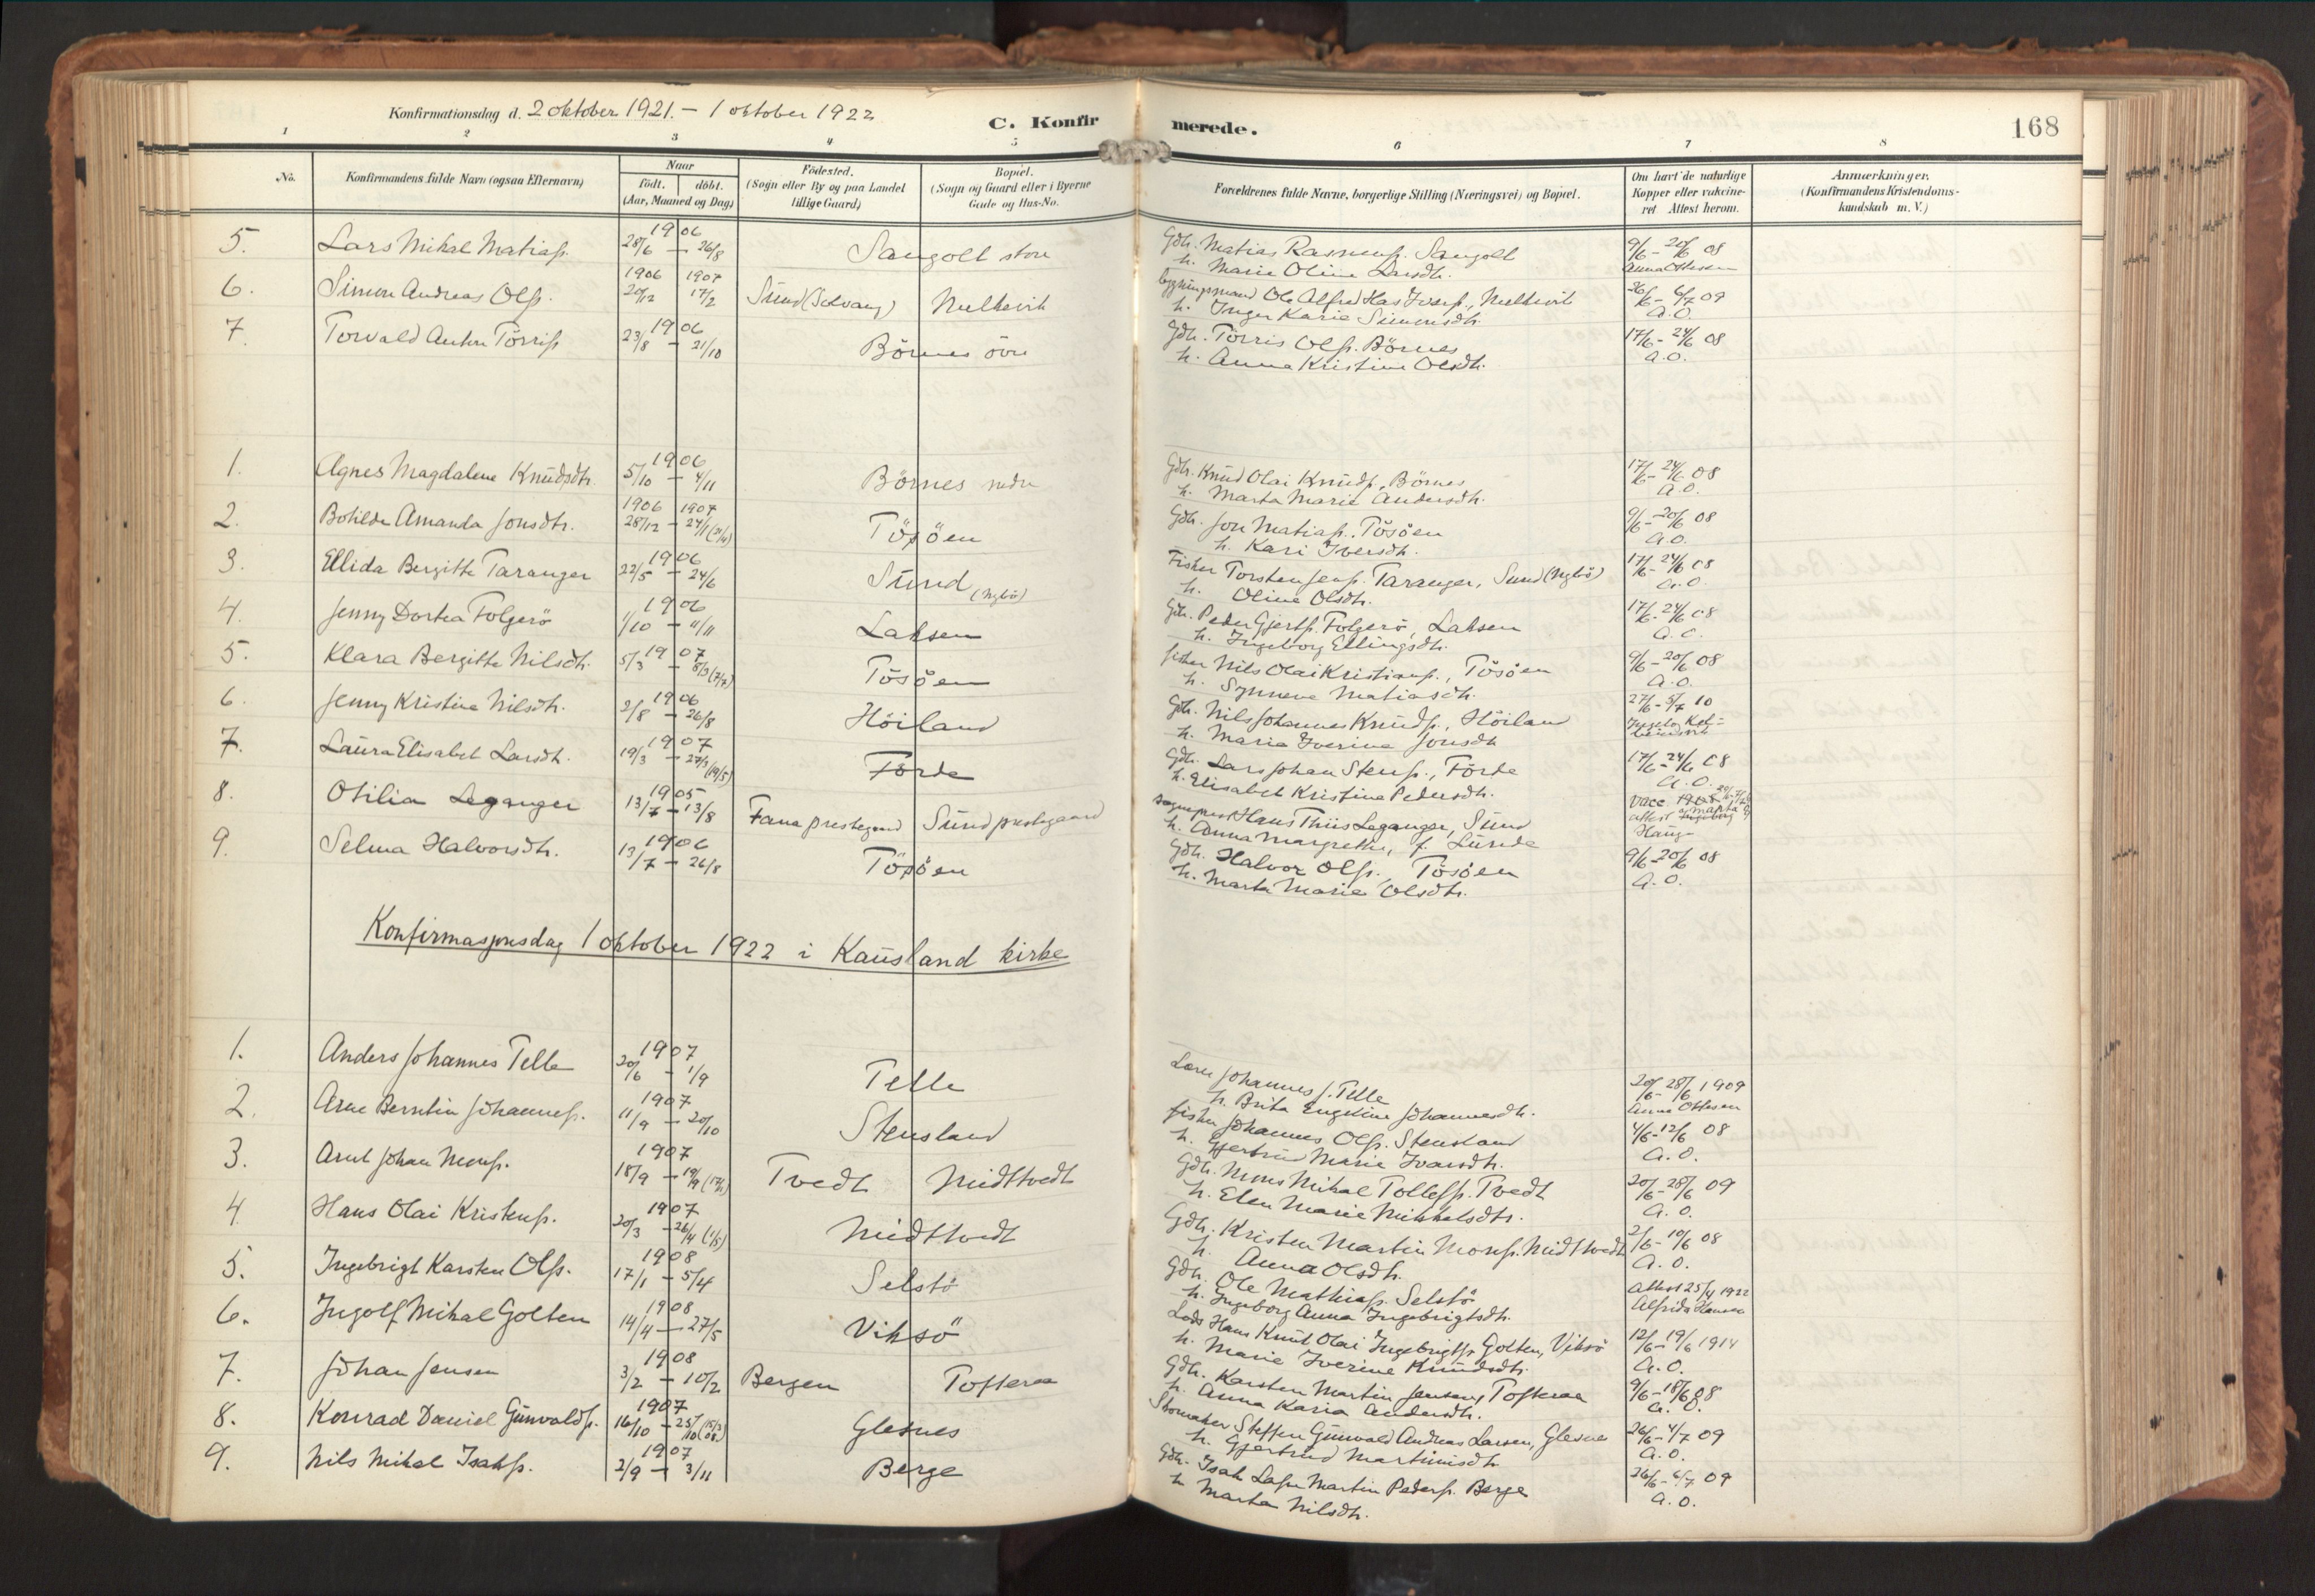 Konfirmationsdag d. 2 oktober 1921. – 1 oktober 1922
C. Konfirmerede.
168
1 2 3 4 5 6 7 8
No.
Konfirmandens fulde Navn (ogsaa Efternavn)
Naar
født. døbt.
(Aar, Maaned og Dag)
Fødested.
(Sogn eller By og paa Landet
tillige Gaard)
Bopæl.
(Sogn og Gaard eller i Byerne
Gade og Hus-No.
Forældrenes fulde Navne, borgerlige Stilling (Næringsvei) og Bopæl.
Om havt de naturlige
Kopper eller vakcine-
ret Attest herom.
Anmærkninger.
(Konfirmandens Kristendoms-
kundskab m. V.)
5. Lars Mikal Matiass. 1906 28/6 – 26/8 Sangolt store Gdr. Matias Rasmuss. Sangolt 9/6 – 20/6 08
h. Marie Oline Larsdtr. Anna Ottesen
6. Simon Andreas Olss. 1906 1907 20/12 17/2 Sund (Solvang) Nulkevik bygningsmand Ole Alfred Ivers., Nulkevik 26/6 – 6/7 09
h. Inger Karie Simonsdtr. A.O.
7. Torvald Anton Törriss. 1906 23/8 – 21/10 Börnes övre Gdr. Törris Olss. Börnes 17/6 – 24/6 08
h. Anna Kristine Olsdtr. A.O.
1. Agnes Magdalene Knudsdtr. 1906 5/10 – 4/11 Börnes nedre Gdr. Knud Olai Knuds., Börnes 17/6 – 24/6 08
h. Marta Marie Andersdtr. A.O.
2. Botilde Amanda Jonsdtr. 1906 1907 28/12 – 24/1 Tösöen Gdr. Jon Matiass. Tösöen 9/6 – 20/6 08
h. Kari Iversdtr. A.O.
3. Ellida Bergitte Taranger 1906 22/5 – 24/6 Sund (Nybö) Fisker Torsten Jens. Taranger, Sund (Nybö) 17/6 – 24/6 08
h. Oline Olsdtr. A.O.
4. Jenny Dortea Folgerö 1906 1/10 – 11/11 Laksen Gdr. Peder Gjerts. Folgerö, Laksen 17/6 – 24/6 08
h. Ingeborg Ellingsdtr. A.O.
5. Klara Bergitte Nilsdtr. 1907 5/3 – 8/3 (7/7) Tösöen fisker Nils Olai Kristians., Tösöen 9/6 – 20/6 08
h. Synneve Matiasdtr. A.O.
6. Jenny Kristine Nilsdtr. 1906 2/8 – 26/8 Höiland Gdr. Nils Johannes Knuds., Höiland 27/6 – 5/7 10
h. Maria Iverine Jonsdtr.
7. Laura Elisabet Larsdtr. 1907 19/3 – 27/3 (19/5) Förde Gdr. Lars Johan Stens., Förde 17/6 – 24/6 08
h. Elisabet Kristine Pedersdtr. A.O.
8. Otilia Leganger 1905 13/7 – 13/8 Fana prestegaard Sund prestegaard sogneprest Hans Thiis Leganger, Sund vacc.
h. Anna Margrethe, f. Lunde Hauge
9. Selma Halvorsdtr. 1906 13/7 – 26/8 Tösöen Gdr. Halvor Olss. Tösöen 9/6 – 20/6 08
h. Marta Marie Olsdtr. A.O.
Konfirmasjonsdag 1 oktober 1922 i Kausland kirke
1. Anders Johannes Telle 1907 20/6 – 1/9 Telle Lærer Johannes J. Telle 20/6 – 28/6 1909
h. Brita Engeline Johannesdtr. Anna Ottesen
2. Arne Berntin Johanness. 1907 11/9 – 20/10 Stensland fisker Johannes Olss. Stensland 4/6 – 12/6 08
h. Gjertrud Marie Ivarsdtr. A.O.
3. Arnt Johan Monss. 1907 18/9 – 19/9 Tvedt Midttvedt Gdr. Mons Mikal Tollefss. Tvedt 20/6 – 28/6 09
h. Elen Marie Mikkelsdtr. A.O.
4. Hans Olai Kristens. 1907 20/3 – 26/4 (1/5) Midttvedt Gdr. Kristen Martin Monss. Midttvedt 2/6 – 10/6 08
h. Anna Olsdtr. A.O.
5. Ingebrigt Karsten Olss. 1908 17/1 – 5/4 Selstö Gdr. Ole Mathiass. Selstö Attest 25/4 1922
h. Ingeborg Anna Ingebrigtsdtr. Alfrida Hansen
6. Ingolf Mikal Golten 1908 14/4 – 27/5 Viksö Lods Hans Knut Olai Ingebrigts. Golten, Viksö 12/6 – 19/6 1914
h. Marie Iverine Knudsdtr. A.O.
7. Johan Jensen 1908 3/2 – 10/2 Bergen Tofteraa Gdr. Karsten Martin Jensen, Tofteraa 9/6 – 18/6 08
h. Anna Karia Andersdtr. A.O.
8. Konrad Daniel Gunvalds. 1907 16/10 – 25/10 (15/3 08) Glesnes Skomaker Steffen Gunvald Andreas Larsen, Glesnes 26/6 – 4/7 09
h. Gjertrud Martinusdtr. A.O.
9. Nils Mikal Isaks. 1907 2/9 – 3/11 Berge Gdr. Isak Martin Peders. Berge 26/6 – 6/7 09
h. Marta Nilsdtr. A.O.